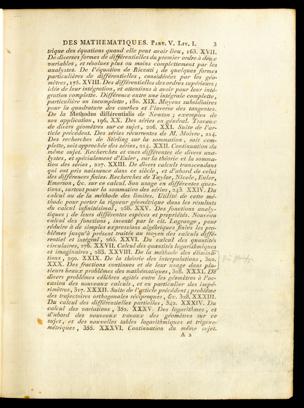 DES MATHEMATIQUES. Part. V. Liv. I. 3
trique des équations quand elle peut avoir lieu, 163. XVII.
De diverses formes de différentielles du premier ordre à deux
variables, et résolues plus ou moins complettement par les
analystes. De l'équation de Riccati; de quelques formes
particulières de différentielles, considérées par les géo-
mètres, 176. XVIII. Des différentielles des ordres supérieurs;
idée de leur intégration, et attentions à avoir pour leur inté-
gration complette. Différence entre une intégrale complette,
particulière ou incomplette, 180. XIX. Moyens subsidiaires
pour la quadrature des courbes et l'inverse des tangentes.
De la Methodus differentialis de Newton; exemples de
son application, 196. XX. Des séries en général. Travaux
de divers géomètres sur ce sujet, 208. XXI. Suite de l'ar-
ticle précédent. Des séries récurrentes de M. Moivre, 214.
Des recherches de Stirling sur la sommation, soit com-
plette, soit approchée des séries, 224. XXII. Continuation du
même sujet. Recherches et vues différentes de divers ana-
lystes, et spécialement d'Euler, sur la théorie et la somma-
tion des séries, 227. XXIII. De divers calculs transcendans
qui ont pris naissance dans ce siècle, et d'abord de celui
des différences finies. Recherches de Taylor, Nicole, Euler,
Emerson, &c. sur ce calcul. Son usage en différentes ques-
tions, surtout pour la sommation des séries, 243. XXIV. Du
calcul ou de la méthode des limites. Utilité de cette mé-
thode pour porter la rigueur géométrique dans les résultats
du calcul infinitésimal, 256. XXV. Des fonctions analy-
tiques; de leurs différentes espèces et propriétés. Nouveau
calcul des fonctions, inventé par le cit. Lagrange, pour
réduire à de simples expressions algébriques finies les pro-
blêmes jusqu'à présent traités au moyen des calculs diffé-
rentiel et intégral, 265. XXVI. Du calcul des quantités
circulaires, 276. XXVII. Calcul des quantités logarithmiques
et imaginaires, 283. XXVIII. De la méthode des élimina-
tions, 290. XXIX. De la théorie des interpolations, 302.
XXX. Des fractions continues et de leur usage dans plu-
sieurs beaux problêmes des mathématiques, 308. XXXI. De
divers problêmes célèbres agités entre les géomètres à l'oc-
casion des nouveaux calculs, et en particulier des isopé-
rimètres, 317. XXXII. Suite de l'article précédent; problême
des trajectoires orthogonales réciproques, &c. 328. XXXIII.
Du calcul des différentielles partielles, 342. XXXIV. Du
calcul des variations, 352. XXXV. Des logarithmes, et
d'abord des nouveaux travaux des géomètres sur ce
sujet, et des nouvelles tables logarithmiques et trigono-
métriques, 355. XXXVI. Continuation du même sujet.
A 2